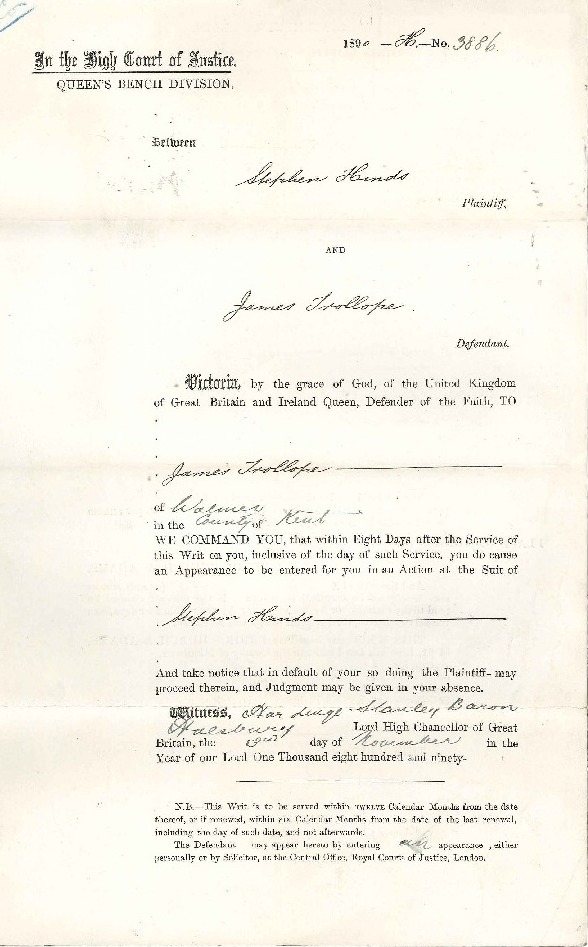 1890 — H.—No. 3886.
In the High Court of Justice.
QUEEN'S BENCH DIVISION.
Between
Stephen Hinds
Plaintiff,
AND
James Trollope.
Defendant.
Victoria, by the grace of God, of the United Kingdom
of Great Britain and Ireland Queen, Defender of the Faith, TO
James Trollope
of Walmer
in the County of Kent
WE COMMAND YOU, that within Eight Days after the Service of
this Writ on you, inclusive of the day of such Service, you do cause
an Appearance to be entered for you in an Action at the Suit of
Stephen Hinds
And take notice that in default of your so doing the Plaintiff may
proceed therein, and Judgment may be given in your absence.
Witness, Hardinge Stanley Baron
Halsbury Lord High Chancellor of Great
Britain, the day of November in the
Year of our Lord One Thousand eight hundred and ninety-
N.B.—This Writ is to be served within TWELVE Calendar Months from the date
thereof, or if renewed, within SIX Calendar Months from the date of the last renewal,
including the day of such date, and not afterwards.
The Defendant may appear hereto by entering an appearance, either
personally or by Solicitor, at the Central Office, Royal Courts of Justice, London.